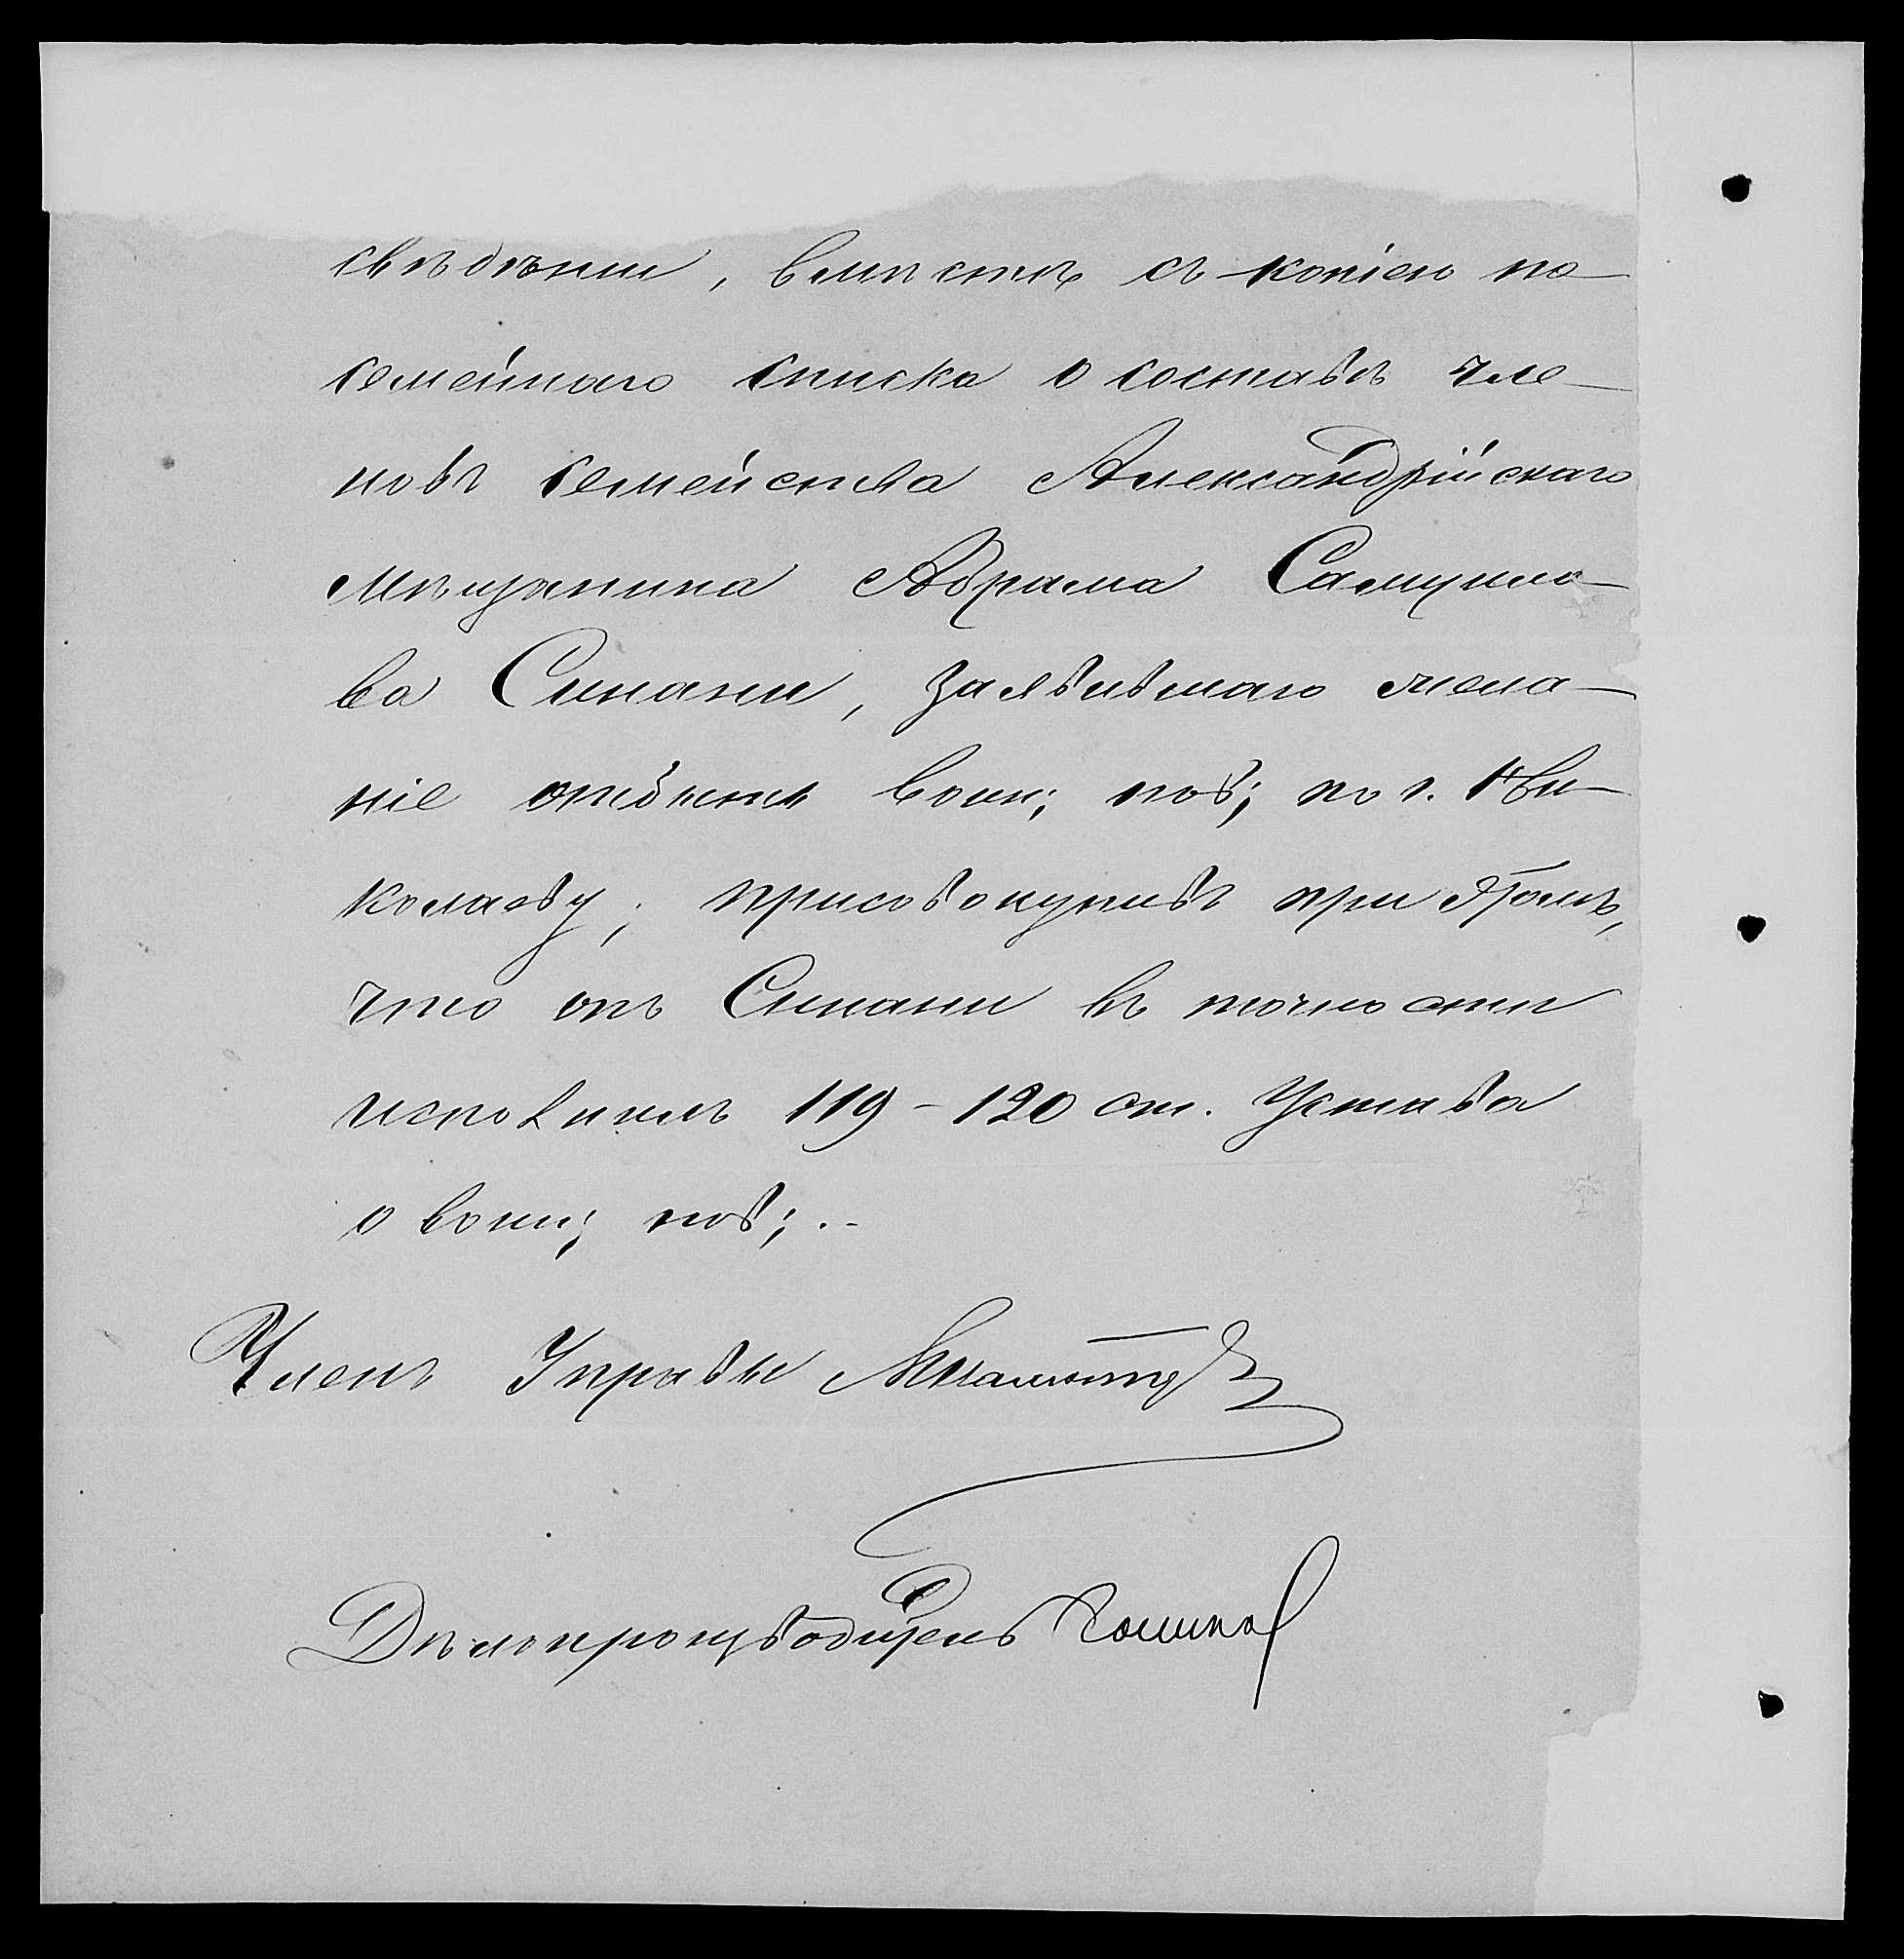 свѣдѣнии, вмѣстѣ съ копіею по-
семейнаго списка о составѣ чле-
новъ семейства Александрійскаго
мѣщанина Абрама Самуило-
ва Синани, заявившаго жела-
ніе отбыть воин; пов; по г. Ни-
колаеву, присовокупивъ при этомъ,
что онъ Синани въ точности
исполнилъ 119-120 ст. Устава
о воин; пов; ..
Членъ Управы
Дѣлопроизводитель